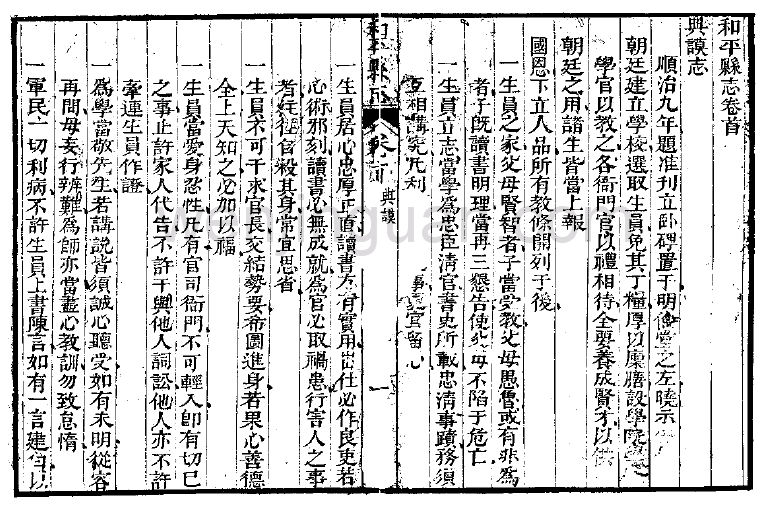 和平縣志卷首
典謨志
順治九年題准刊立卧碑置于明倫堂之左曉示
朝廷建立學校選取生員免其丁糧厚以廩膳設學院學
學官以教之各衙門官以禮相待全要養成賢才以供
朝廷之用諸生皆當上報
國恩下立人品所有教條開列于後
一生員之家父母賢智者子當受教父母愚魯或有非爲
者子既讀書明理當再三懇告使父母不陷于危亡
一生員立志當學爲忠臣清官書史所載忠清事蹟務須
互相講究凡利 事更宜留心
和平縣志 卷首 典謨 一
一生員居心忠厚正直讀書方有實用出仕必作良吏若
心術邪刻讀書必無成就爲官必取禍患行害人之事
者往往自殺其身常宜思省
一生員不可干求官長交結勢要希圖進身若果心善德
全上天知之必加以福
一生員當愛身忍性凡有官司衙門不可輕入即有切己
之事止許家人代告不許干與他人詞訟他人亦不許
牽連生員作證
一爲學當敬先生若講說皆須誠心聽受如有未明從容
再問毋妄行辨難爲師亦當盡心教訓勿致怠惰
一軍民一切利病不許生員上書陳言如有一言建白以
weiyinguan.com